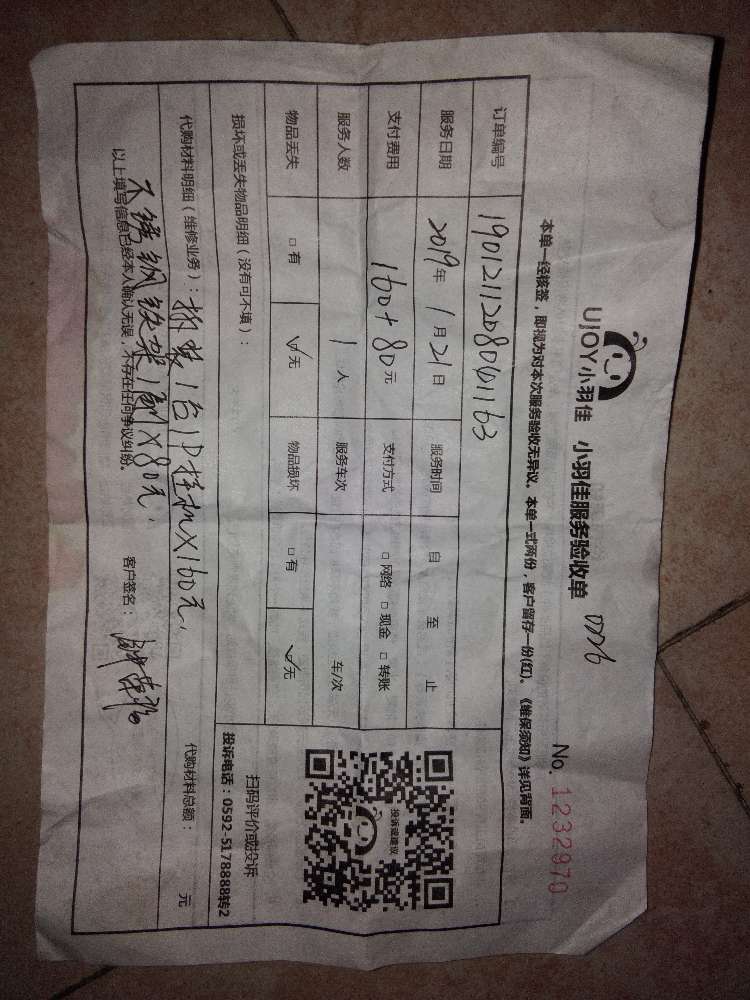 UJOY小羽佳 小羽佳服务验收单
No. 1232970
本单一经核签，即视为对本次服务验收无异议。本单一式两份，客户留存一份(红)。《维保须知》详见背面。
订单编号 190121120800001163
服务日期 2019年 1月21日 服务时间 自 至 止
支付费用 160+80元 支付方式 □网络 □现金 □转账
服务人数 1人 服务车次 车/次
物品丢失 □有 ☑无 物品损坏 □有 ☑无
投诉或建议
扫码评价或投诉
投诉电话：0592-5178888转2
损坏或丢失物品明细（没有可不填）：
代购材料明细（维修业务）：拆装1台1P挂机×160元， 代购材料总额： 元
不锈钢铁架1副×80元，
以上填写信息已经本人确认无误，不存在任何争议纠纷。 客户签名：